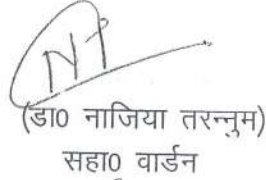 (डा0 नाजिया तरन्नुम)
सहा0 वार्डन